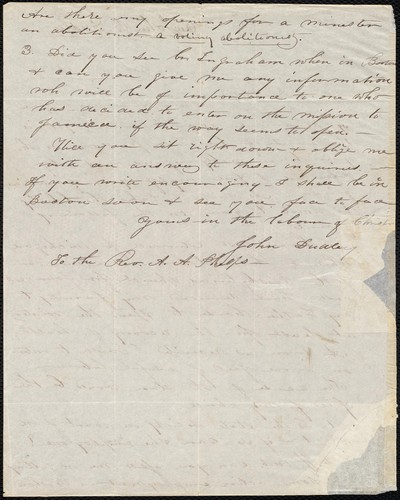 Are there any openings for a minister
an abolitionist a voting abolitionist.
3. Did you see br. Ingraham when in Boston
& can you give me any information
wh will be of importance to one who
has decided to enter on the mission to
Jamica. if the way seems to open.-
Will you sit right down & oblige me
with an answer to these inquiries
If you write encouraging. I shall be in
Boston soon & see you face to face
Yours in the labour of Christ
John Dudley
To the Rev. A. A. Phelps-